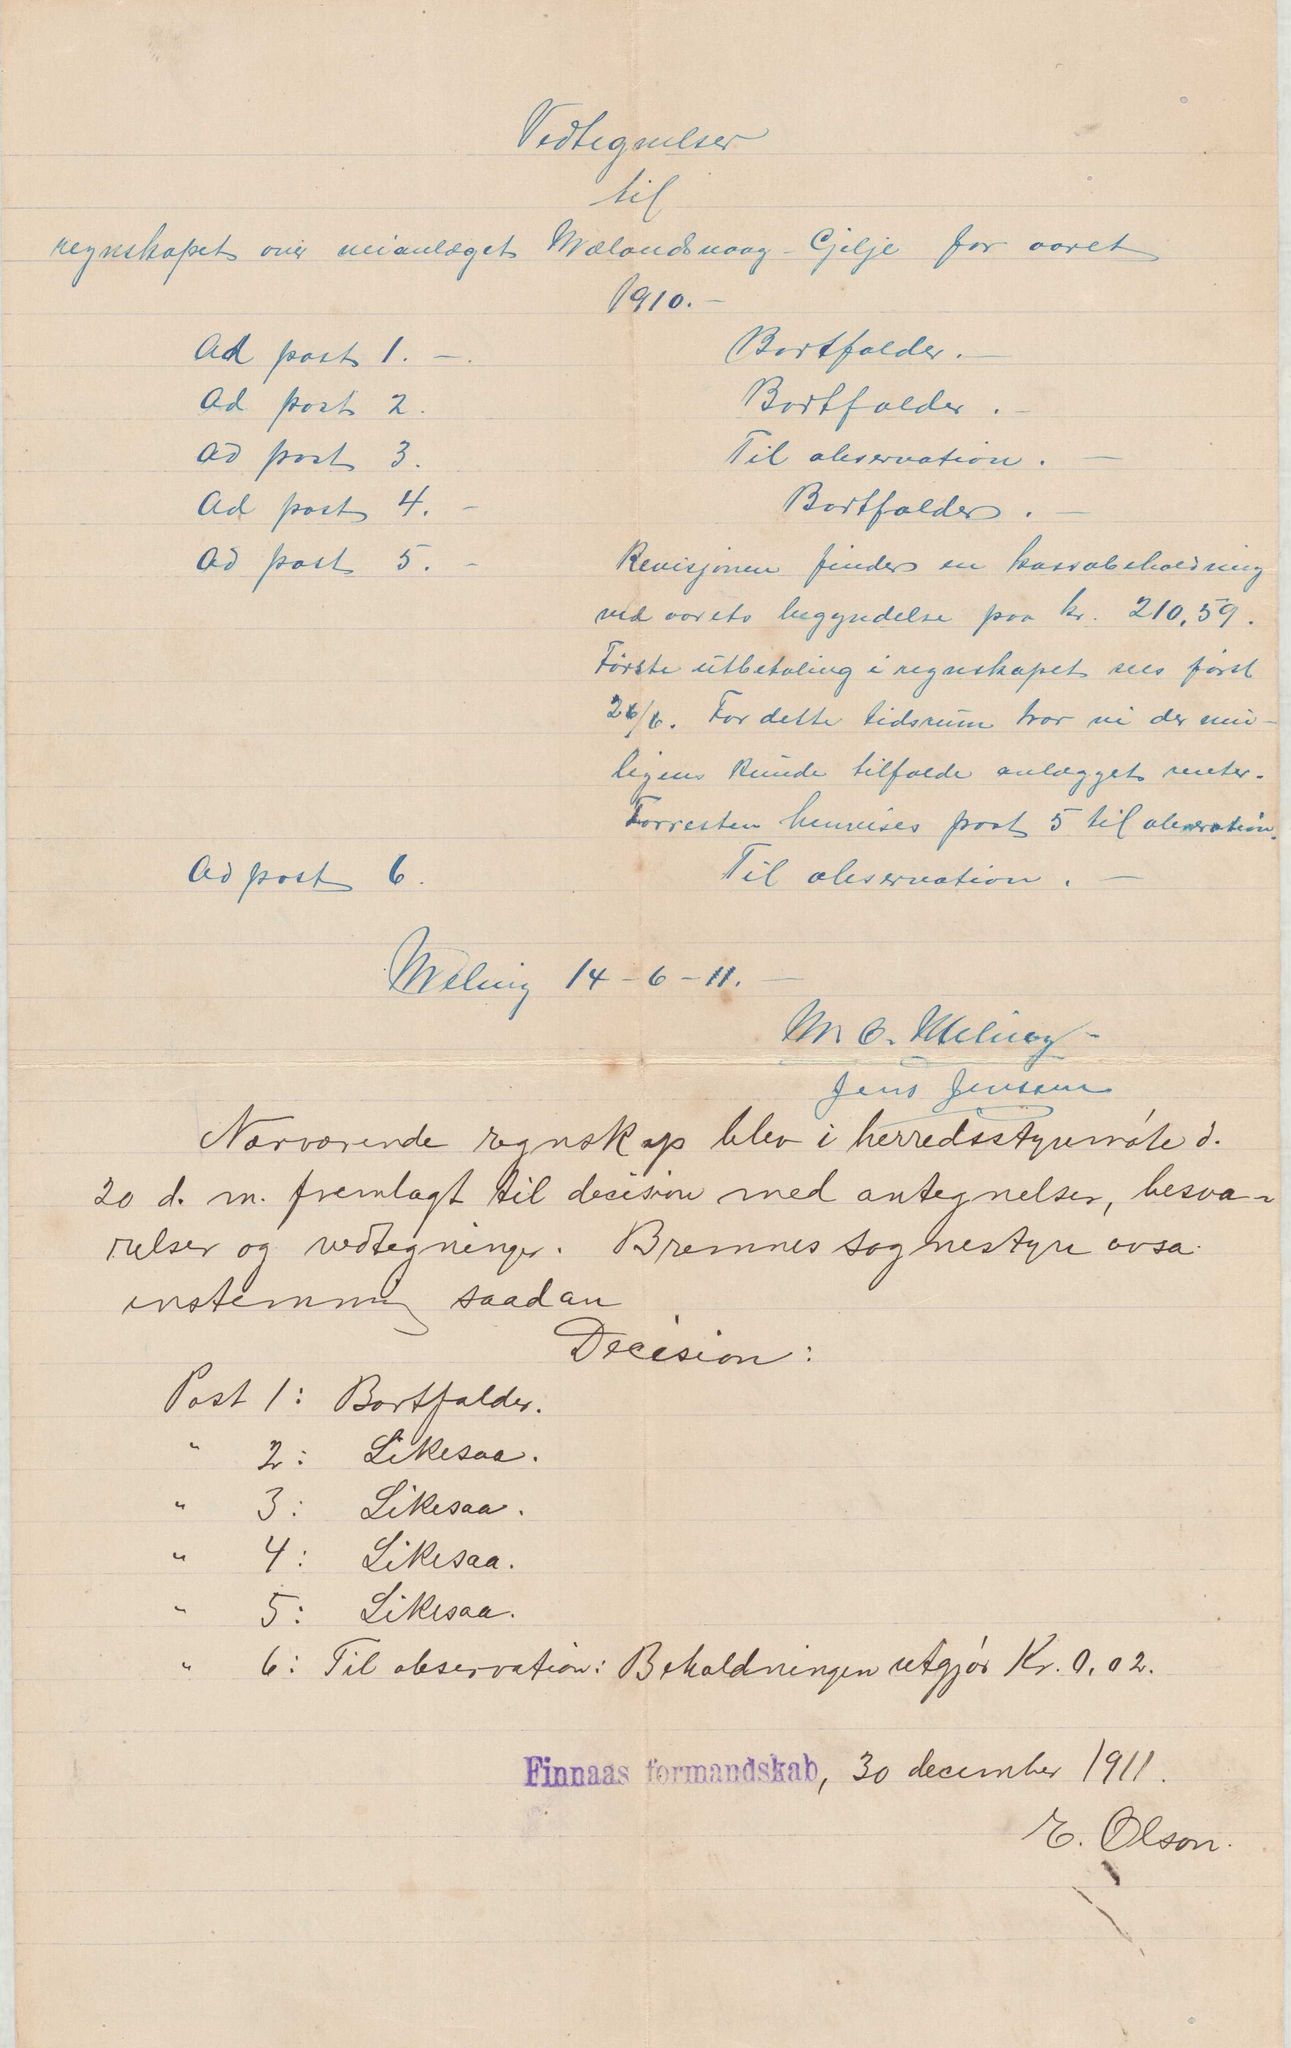 Vedtegnelser
til
regnskapet over veianlæget Mælandsvaag - Gjelje for aaret
1910. -
Ad post 1. - Bortfalder. -
Ad post 2. Bortfalder. -
Ad post 3. Til observation. -
Ad post 4. - Bortfalder. -
Ad post 5. - Revisjonen finder en kassabeholdning
ved aarets begyndelse paa kr. 210,59.
Første utbetaling i regnskapet sees først
26/6. For dette tidsrum tror vi der mu-
ligens kunde tilfalde anlægget renter.
Forresten henvises post 5 til observation.
Ad post 6. Til observation. -
Meling 14 - 6 - 11. -
M O. Meling -
Jens Jensen
Nærværende regnskap blev i herredsstyremøte d.
20 d. m. fremlagt til decision med antegnelser, besva-
relser og vedtegninger. Bremnes sognestyre avsa
enstemmig saadan
Decision:
Post 1: Bortfalder.
" 2: Likesaa.
" 3: Likesaa.
" 4: Likesaa.
" 5: Likesaa.
" 6: Til observation: Beholdningen utgjør Kr. 0,02.
Finnaas formandskab, 30 december 1911.
E. Olson.